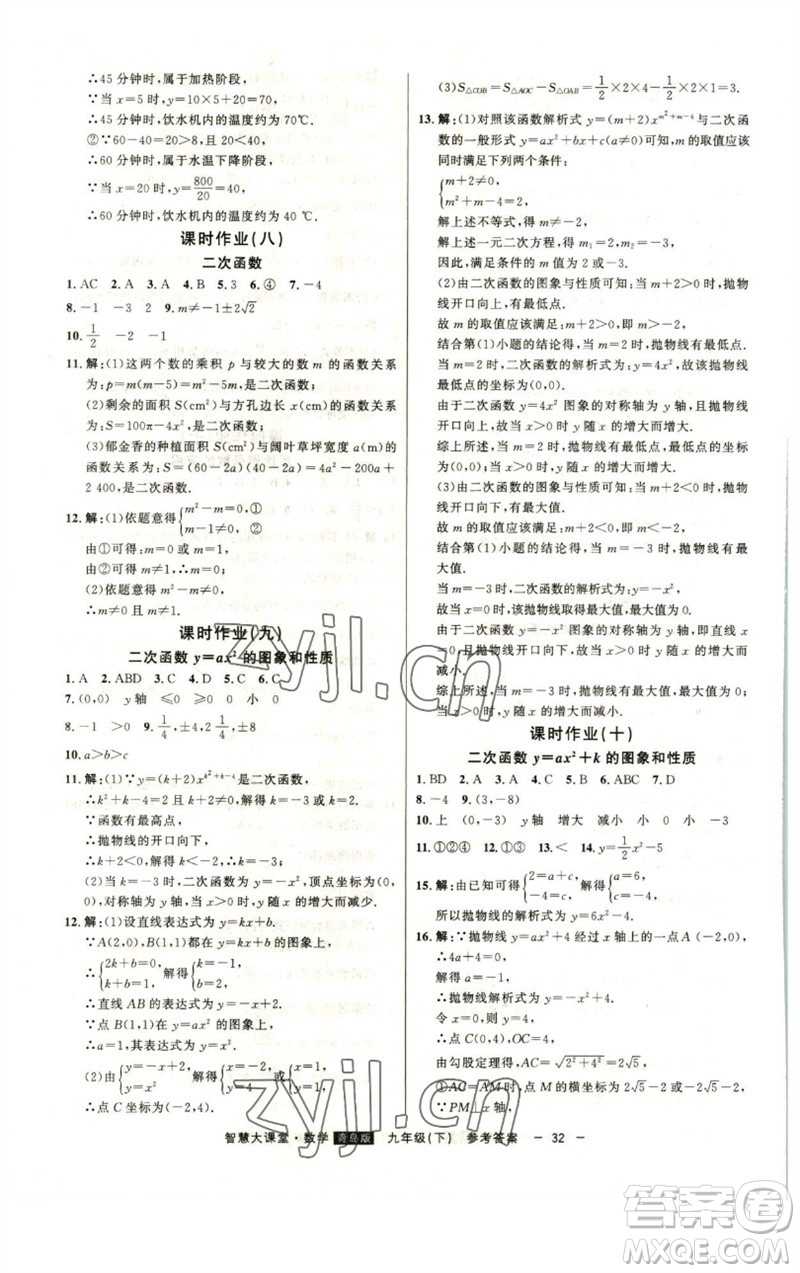 ∴45 分钟时,属于加热阶段,
∵当 x=5 时,y=10×5+20=70,
∴45 分钟时,饮水机内的温度约为 70℃.
②∵60-40=20>8,
∴60 分钟时,属于水温下降阶段,
∵当 x=20 时,y=800/20=40,
∴60 分钟时,饮水机内的温度约为 40 ℃.
课时作业(八)
二次函数
1. AC 2. A 3. A 4. B 5. 3 6. ④ 7. -4
8. -1 -3 2 9. m≠-1±2√2
10. 1/2 -2 -1
11. 解:(1)这两个数的乘积 p 与较大的数 m 的函数关系
为:p=m(m-5)=m²-5m,是二次函数;
(2)剩余的面积 S(cm²)与方孔边长 x(cm)的函数关系
为:S=100π-4x²,是二次函数;
(3)郁金香的种植面积 S(cm²)与阔叶草坪宽度 a(m)的
函数关系为:S=(60-2a)(40-2a)=4a²-200a+
2 400,是二次函数.
12. 解:(1)依题意得{m²-m=0,①
m-1≠0, ②
由①可得:m=0或m=1;
由②可得:m≠1,∴m=0;
(2)依题意得 m²-m≠0,
∴m≠0 且 m≠1.
课时作业(九)
二次函数 y=ax² 的图象和性质
1. A 2. ABD 3. C 4. D 5. C 6. C
7. (0,0) y 轴 ≤0 ≥0 小 0
8. -1 >0 9. 1/4,±4,1/4,±8
10. a>b>c
11. 解:(1)∵y=(k+2)x^(k²+k-4)是二次函数,
∴k²+k-4=2,解得:k=2 或 k=-3,
∵函数有最高点,
∴抛物线的开口向下,
∴k+2<0,解得:k<-2,∴k=-3;
(2)当 k=-3 时,二次函数为 y=-x²,顶点坐标为(0,
0),对称轴为 y 轴,当 x<0 时,y 随 x 的增大而增大.
12. 解:(1)设直线表达式为 y=kx+b.
∵A(2,0),B(1,1)都在 y=kx+b 的图象上,
∴{2k+b=0,k+b=1, 解得{k=-1,b=2,
∴直线 AB 的表达式为 y=-x+2.
∵点 B(1,1)在 y=ax² 的图象上,
∴a=1,其表达式为 y=x².
(2)由{y=-x+2,y=x², 解得{x=-2,y=4 或{x=1,y=1,
∴点 C 坐标为(-2,4).
(3)S△COB=S△AOC-S△OAB=1/2×2×4-1/2×2×1=3.
13. 解:(1)对照该函数解析式 y=(m+2)x^(m²+m-4)与二次函
数的一般形式 y=ax²+bx+c(a≠0)可知,m 的取值应该
同时满足下列两个条件:
{m+2≠0,
m²+m-4=2,
解上述不等式,得 m≠-2,
解上述一元二次方程,得 m=2 或 m=-3,
因此,满足条件的 m 值为 2 或-3.
(2)由二次函数的图象与性质可知:当 m+2>0 时,抛物
线开口向上,有最低点.
故 m 的取值应该满足:m+2>0,即 m>-2.
结合第(1)小题的结论得,当 m=2 时,抛物线有最低点.
当 m=2 时,二次函数的解析式为 y=4x²,故该抛物线的
最低点的坐标为(0,0).
由于二次函数 y=4x² 图象的对称轴为 y 轴,且抛物线的
开口向上,故当 x>0 时,y 随 x 的增大而增大.
综上所述,当 m=2 时,抛物线有最低点,最低点为(0,
0),当 x>0 时,y 随 x 的增大而增大.
(3)由二次函数的图象与性质可知:当 m+2<0 时,抛物
线开口向下,函数有最大值.
故 m 的取值应该满足:m+2<0,即 m<-2.
结合第(1)小题的结论得,当 m=-3 时,函数有最
大值.
当 m=-3 时,二次函数的解析式为 y=-x²,
故当 x=0 时,该函数的最大值为 0.
由于二次函数 y=-x² 图象的对称轴为 y 轴,且抛物线
的开口向下,故当 x>0 时,y 随 x 的增大而减小.
综上所述,当 m=-3 时,抛物线有最大值,最大值为 0,
当 x>0 时,y 随 x 的增大而减小.
课时作业(十)
二次函数 y=ax²+k 的图象和性质
1. BD 2. A 3. A 4. C 5. B 6. ABC 7. D
8. -4 9. (3,-8)
10. 上 (0,-3) y 轴 增大 减小 小 0 小 -3
11. ①②④ 12. ①③ 13. < 14. y=1/2x²-5
15. 解:由已知可得{2=a+c,-4=c, 解得{a=6,c=-4.
所以抛物线的解析式为 y=6x²-4.
16. 解:∵抛物线 y=ax²+4 经过 x 轴上的一点A (-2,0),
∴4a+4=0,
∴a=-1,
∴抛物线解析式为 y=-x²+4.
令 x=0,则 y=4,
∴点 C(0,4),OC=4,
由勾股定理得,AC=√(2²+4²)=2√5,
①AC=AM时,点 M 的横坐标为 2√5-2,
∵PM⊥x 轴,
∴点 P 的横坐标为 2√5-2,
智慧大课堂·数学 青岛版 九年级(下) 参考答案 - 32 -
zyjl.cn
zyjl.cn
答案圈
MXQE.COM